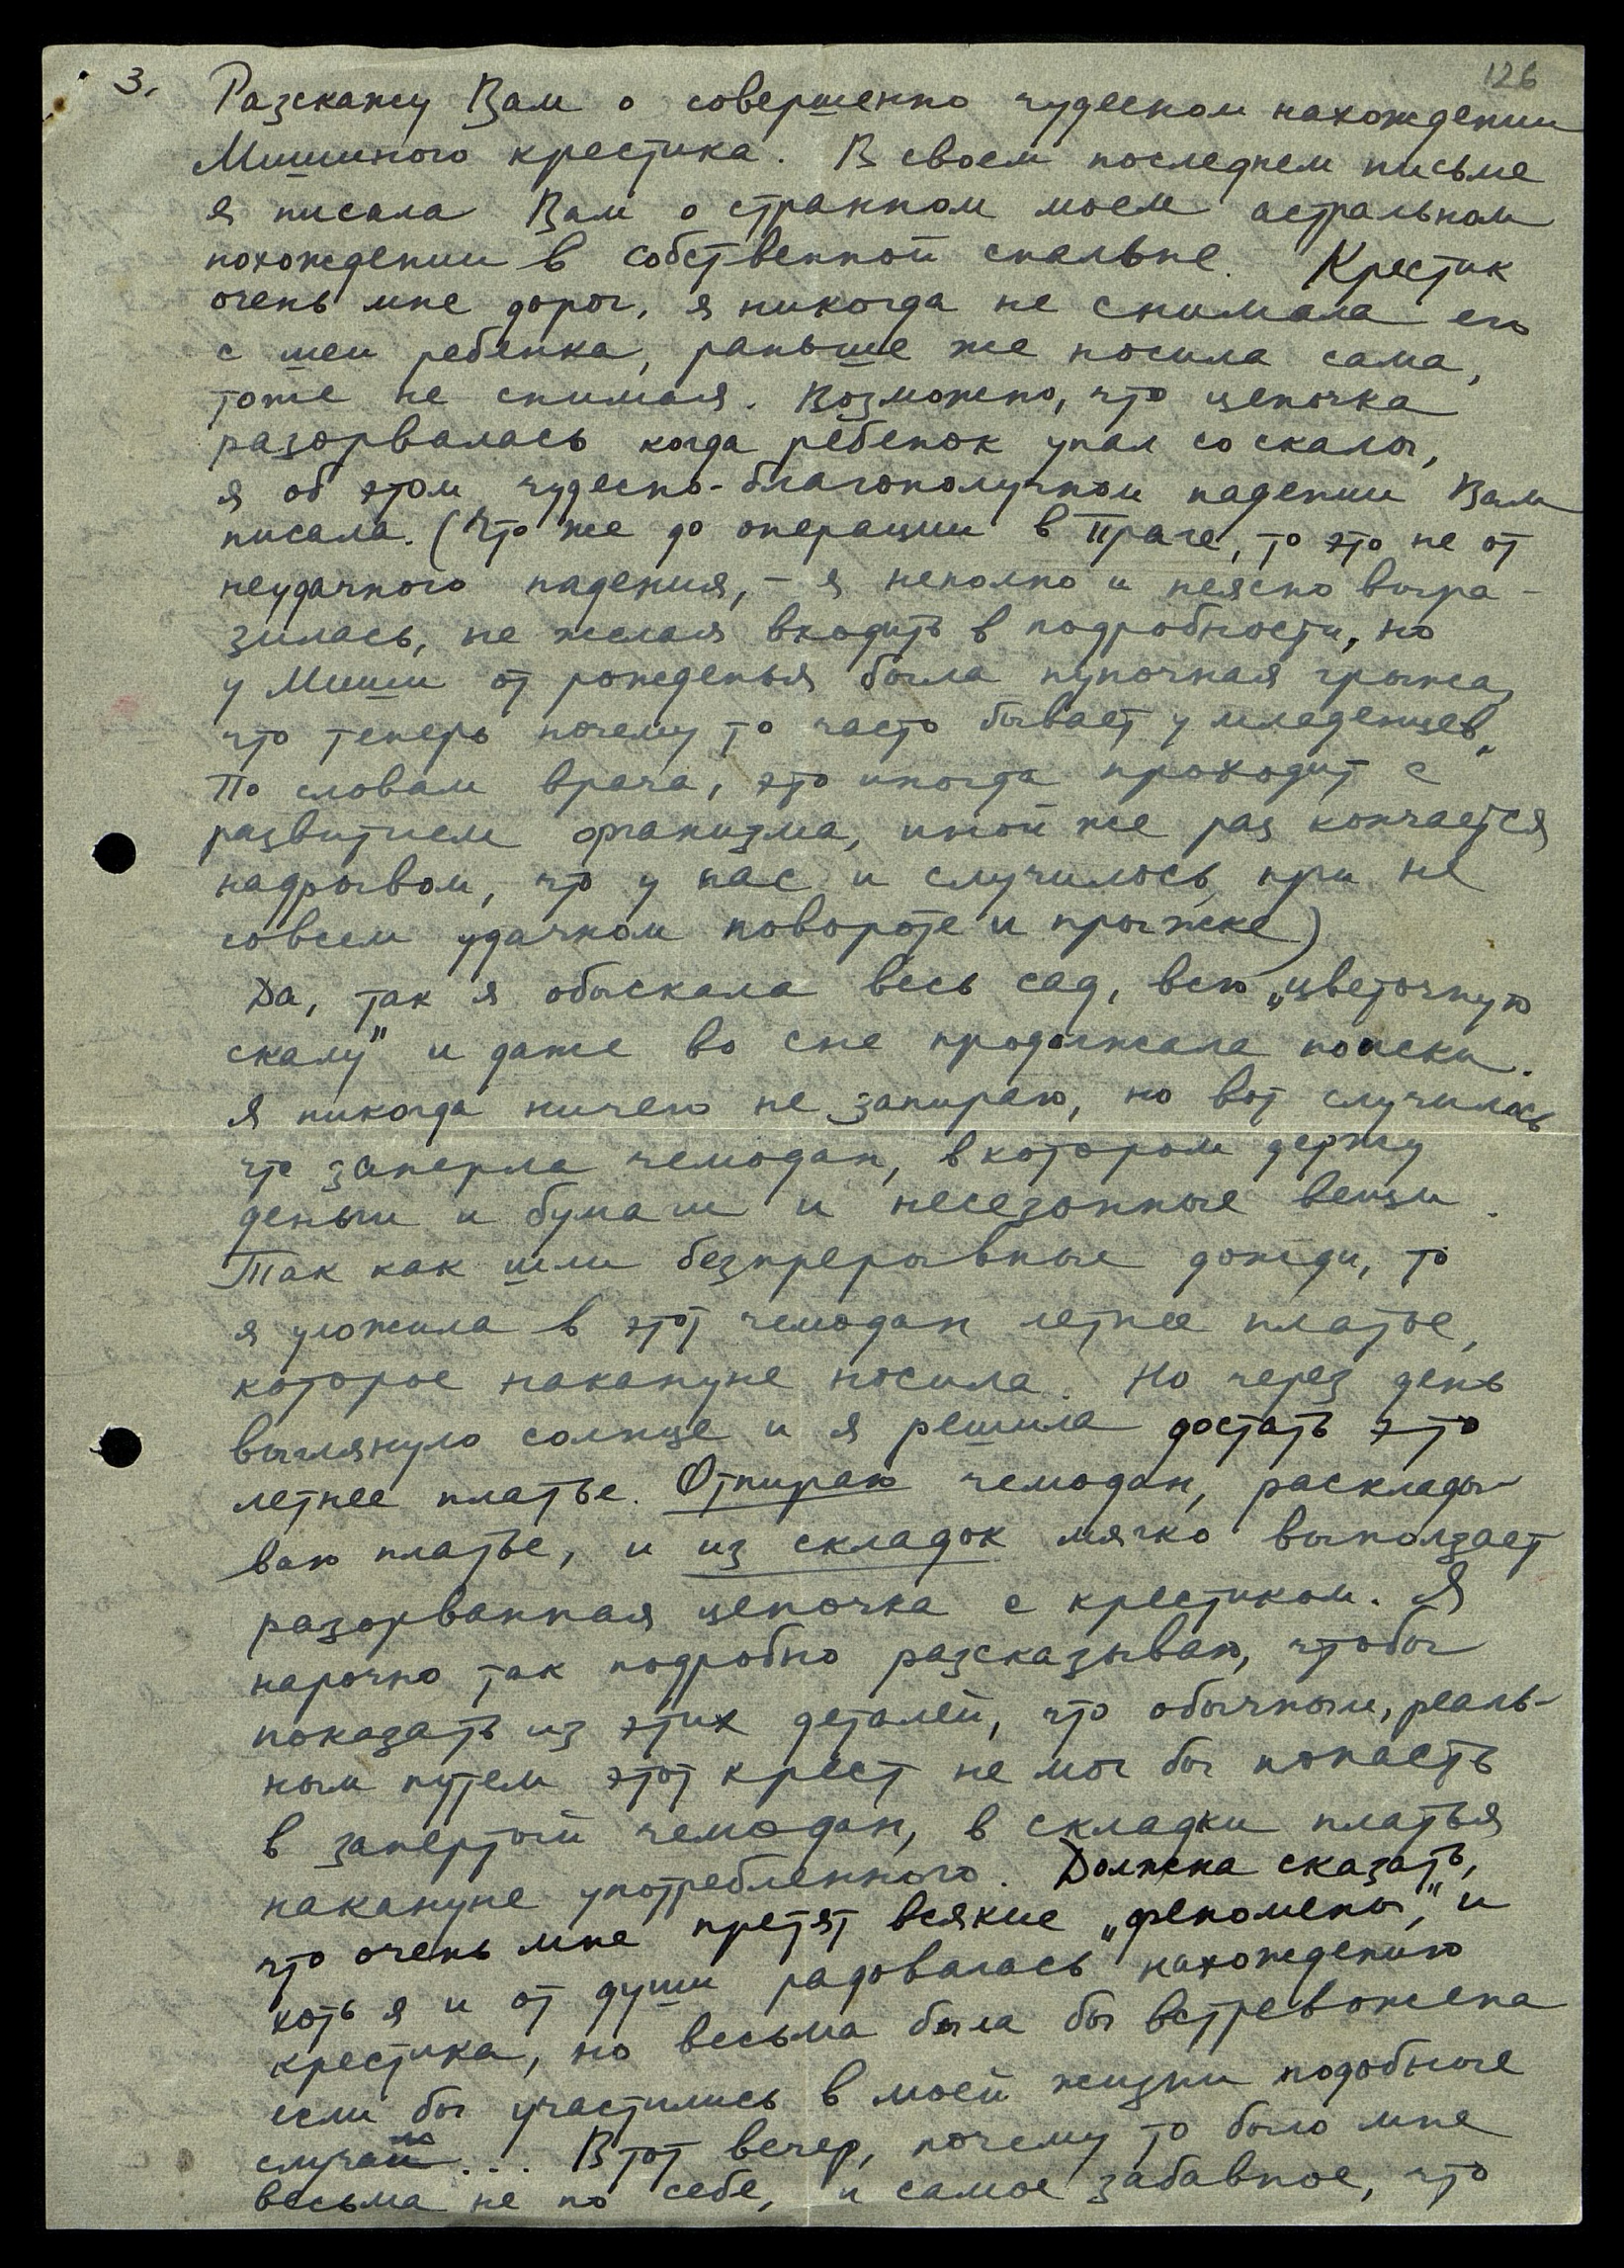 3.
126
Разскажу Вам о совершенно чудесном нахождении
Мишиного крестика. В своем последнем письме
я писала Вам о странном моем астральном
похождении в собственной спальне. Крестик
очень мне дорог, я никогда не снимала его
с шеи ребенка, раньше же носила сама,
тоже не снимая. Возможно, что цепочка
разорвалась когда ребенок упал со скалы,
я об этом чудесно-благополучном падении Вам
писала. (Что же до операции в Праге, то это не от
неудачного падения, - я неполно и неясно выра-
зилась, не желая входить в подробности, но
у Миши от рожденья была пупочная грыжа,
что теперь почему то часто бывает у младенцев.
По словам врача, это иногда проходит с
развитием организма, иной же раз кончается
надрывом, что у нас и случилось при не
совсем удачном повороте и прыжке)
Да, так я обыскала весь сад, всю „цветочную
скалу" и даже во сне продолжала поиски.
Я никогда ничего не запираю, но вот случилось
что заперла чемодан, в котором держу
деньги и бумаги и несезонные вещи.
Так как шли безпрерывные дожди, то
я уложила в этот чемодан летнее платье,
которое накануне носила. Но через день
выглянуло солнце и я решила достать это
летнее платье. Отпираю чемодан, расклады-
ваю платье, и из складок мягко выползает
разорванная цепочка с крестиком. Я
нарочно так подробно разсказываю, чтобы
показать из этих деталей, что обычным, реаль-
ным путем этот крест не мог бы попасть
в запертый чемодан, в складки платья
накануне употребленного. Должна сказать,
что очень мне претят всякие „феномены", и
хоть я и от души радовалась нахождению
крестика, но весьма была бы встревожена
если бы участились в моей жизни подобные
случаи... В тот вечер, почему то было мне
весьма не по себе, и самое забавное, что